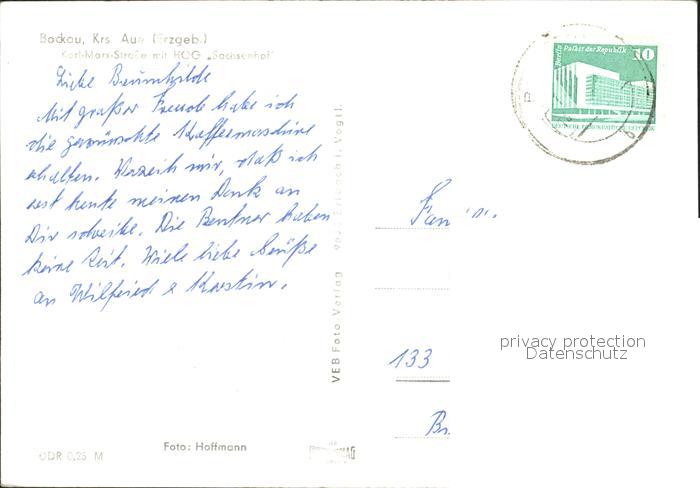 Bockau, Krs. Aue (Erzgeb.)
Karl-Marx-Straße mit HOG „Sachsenhof"
Liebe Brunhilde
Mit großer Freude habe ich
die gewünschte Kaffeemaschine
erhalten. Verzeih mir, daß ich
erst heute meinen Dank an
Dir schreibe. Die Rentner haben
keine Zeit. Viele liebe Grüße
an Wilfried & Kerstin.
VEB Foto-Verlag 9651 Erlbach i. Vogtl.
Berlin Palast der Republik
10
DEUTSCHE DEMOKRATISCHE REPUBLIK
133
privacy protection
Datenschutz
Foto: Hoffmann
DDR 0,25 M